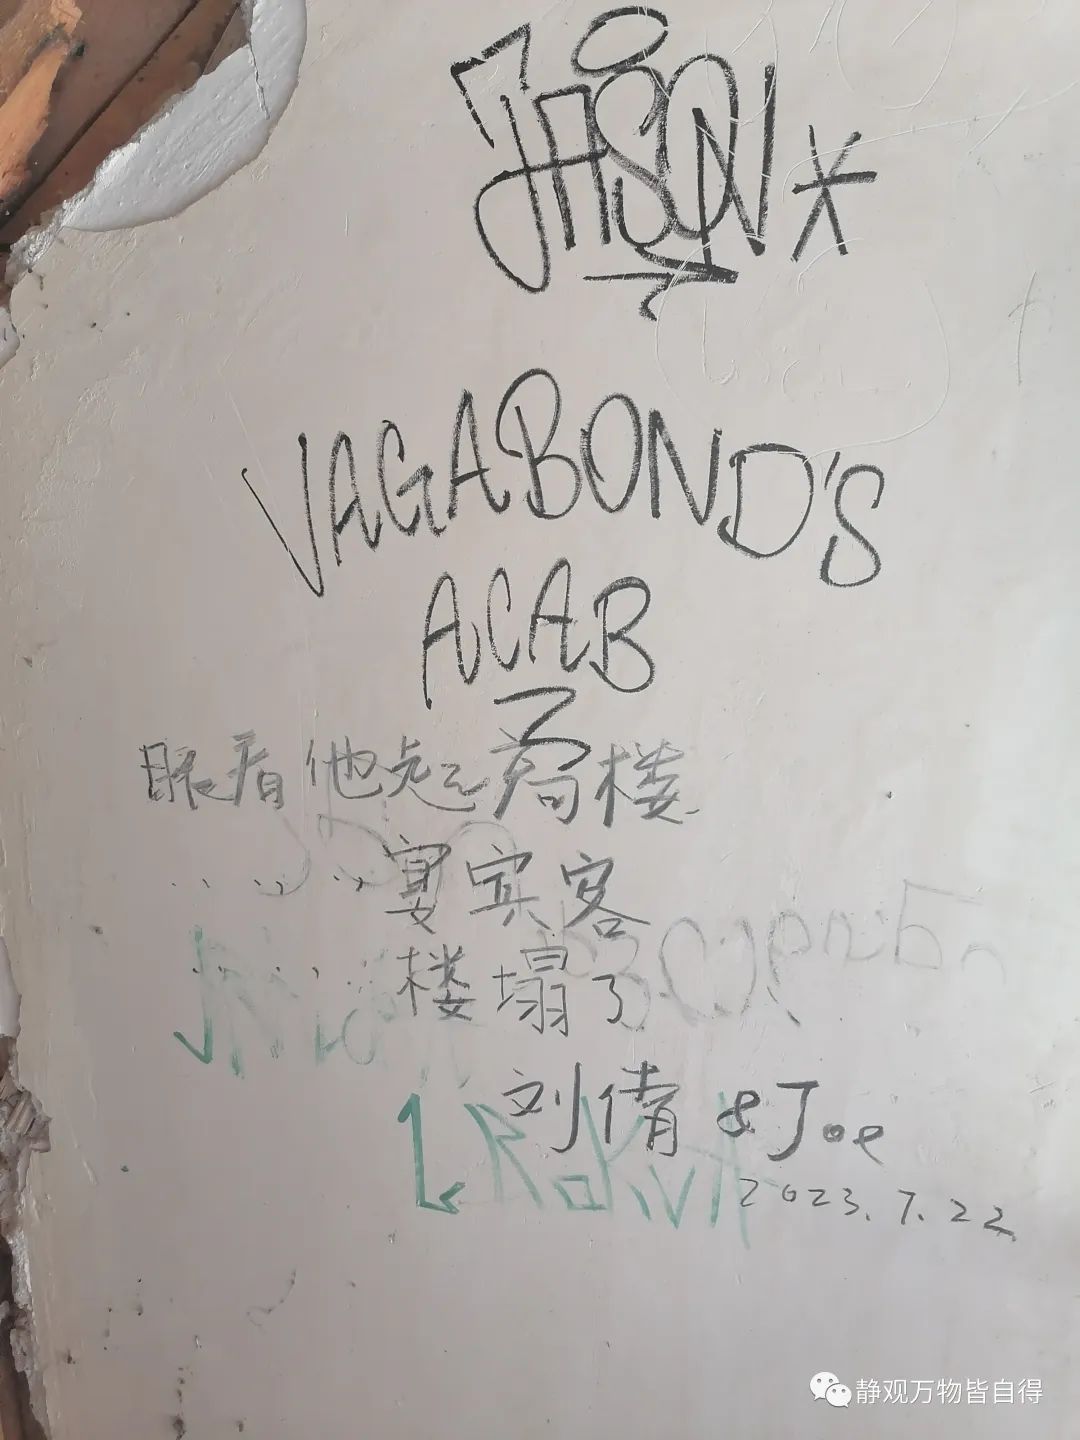 JASON
VAGABOND'S
ACAB
眼看他起高楼
……宴宾客
……楼塌了
刘倩 & Joe
2023.7.22
静观万物皆自得